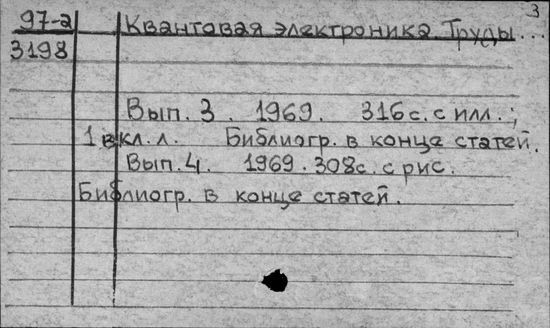 3
97-а Квантовая электроника. Труды...
3198
Вып. 3. 1969. 316 с. с илл.;
1 вкл. л. Библиогр. в конце статей.
Вып. 4. 1969. 308 с. с рис.
Библиогр. в конце статей.